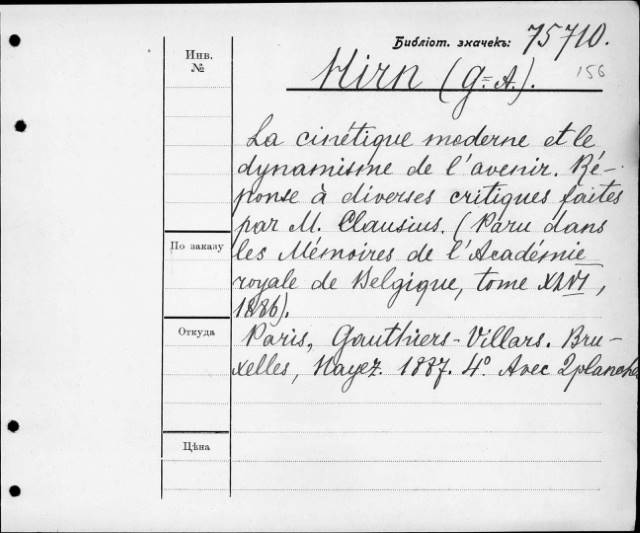 Библіот. значекъ: 75710.
Инв. №
Hirn (G=A.).
156
La cinétique moderne et le
dynamisme de l'avenir. Ré-
ponse à diverses critiques faites
par M. Clausius. (Paru dans
По заказу
les Mémoires de l'Académie
royale de Belgique, tome XLVI,
1886).
Откуда
Paris, Gauthiers-Villars. Bru-
xelles, Hayez. 1887. 4º. Avec 2 planches
Цѣна